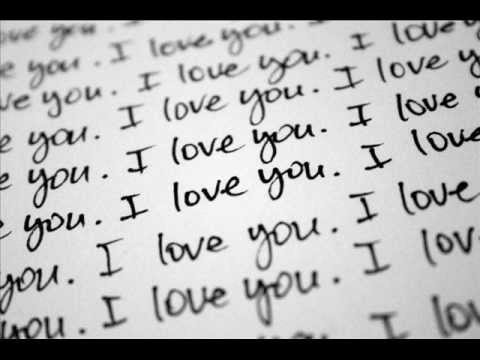 love you. I
e you. I love you. I
ve you. I love you. I love y
e you. I love you. I love
e you. I love you. I love y
you. I love you. I love
you. I love you. I love
you. I love you. I love
I lov